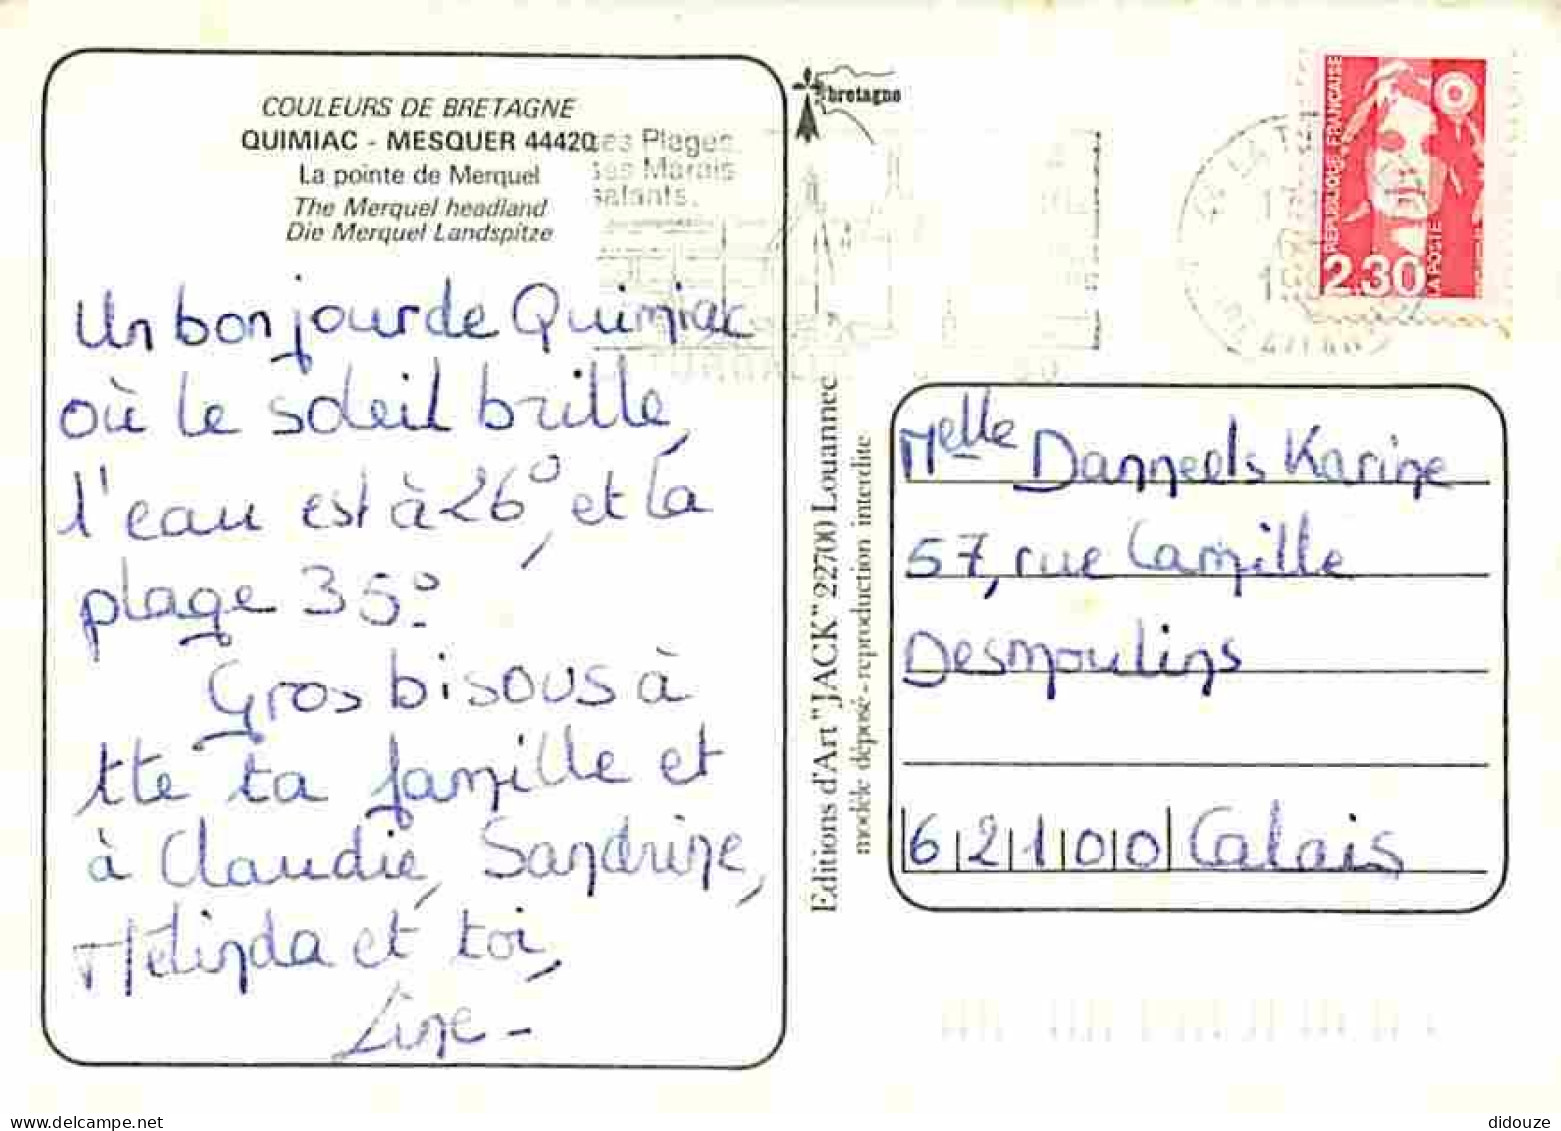 COULEURS DE BRETAGNE
QUIMIAC - MESQUER 44420
La pointe de Merquel
The Merquel headland
Die Merquel Landspitze
ses Plages
ses Marais
salants.
Un bonjour de Quimiac
où le soleil brille,
l'eau est à 26°, et la
plage 35°.
Gros bisous à
tte ta famille et
à Claudie, Sandrine,
Mélinda et toi,
Line -
bretagne
Editions d'Art "JACK" 22700 Louannec
modèle déposé - reproduction interdite
REPUBLIQUE FRANÇAISE
2,30
LA POSTE
Melle Danneels Karine
57, rue Camille
Desmoulins
62100 Calais
didouze